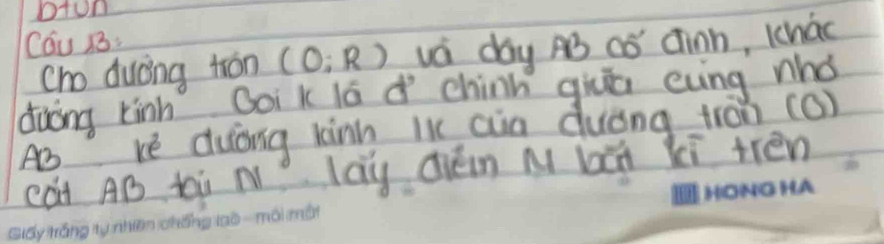 btvn
Câu 13:
Cho đường tròn (O; R) và dây AB cố định, khác
đường kính. Gọi K là đ' chính giữa cung nhỏ
AB kẻ đường kính IK của đường tròn (O)
cắt AB tại N. lấy điểm M bất kì trên
HONG HA
Giấy trắng tự nhiên chống lóa - mỏi mắt